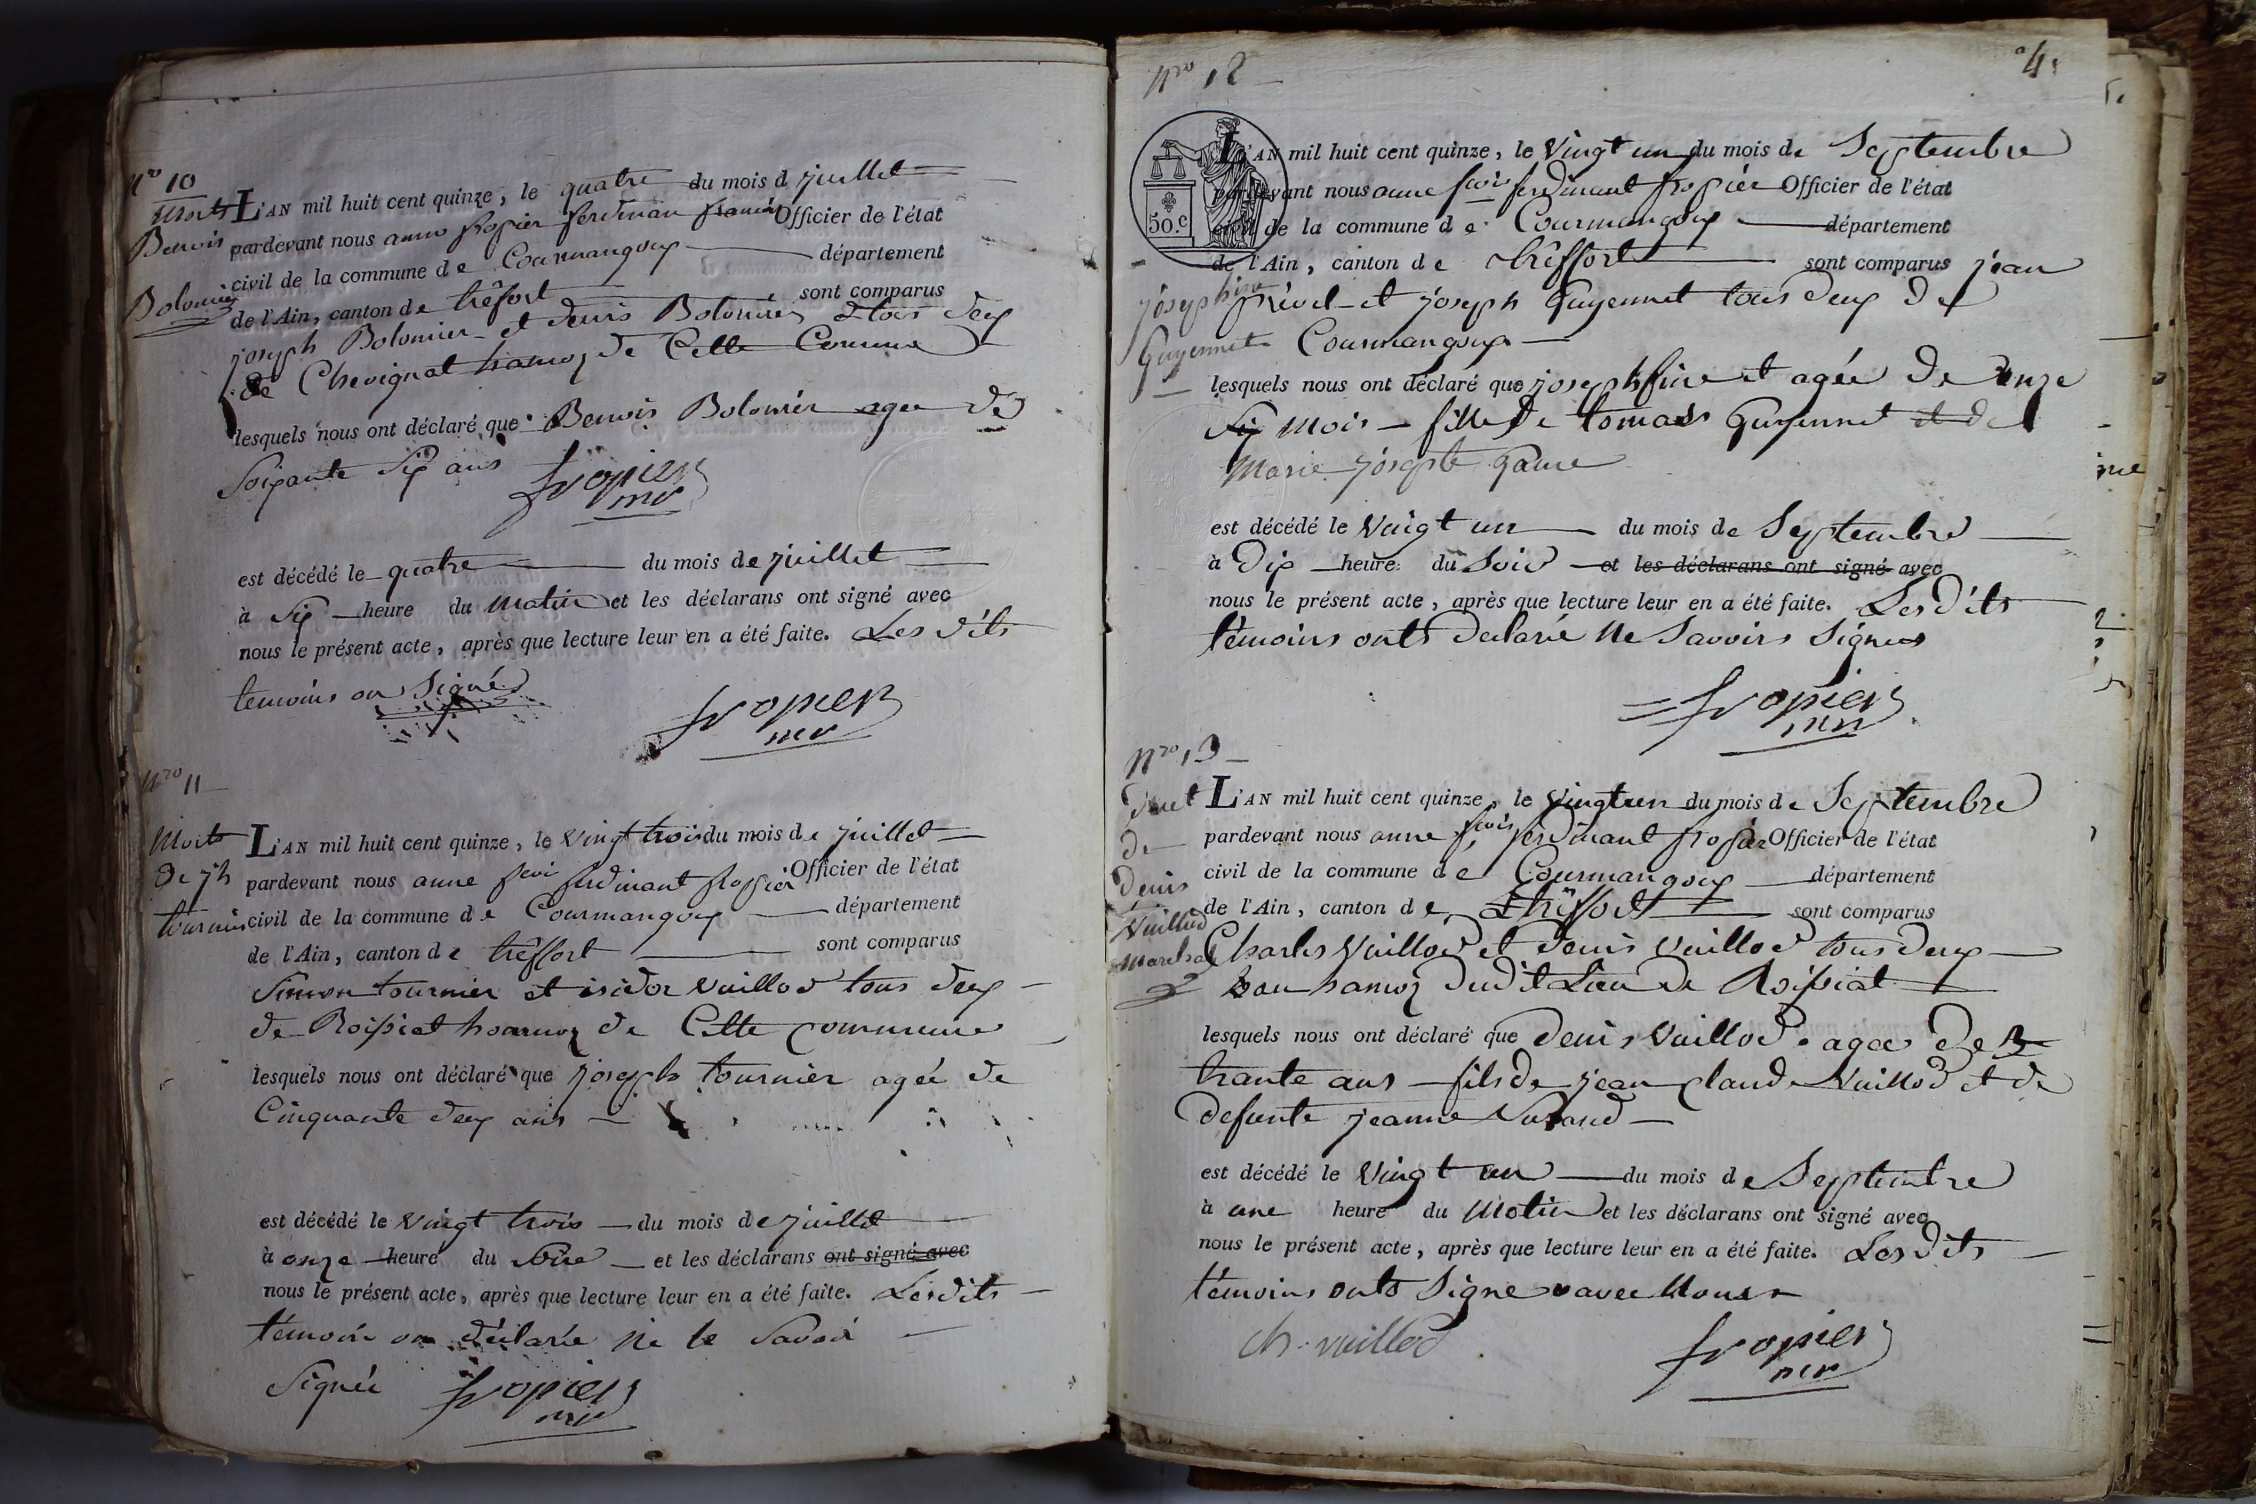 Nº 10
Morts
Benois
Bolomier
L'AN mil huit cent quinze, le quatre du mois d juillet
pardevant nous anne fropier ferdinan francois Officier de l'état
civil de la commune de Courmangoux département
de l'Ain, canton de trêfort sont comparus
joseph Bolomier et denis Bolomier tous deux
de Chevignat hamoz de Cette Commune
lesquels nous ont déclaré que Benois Bolomier agee de
Soixante Six ans fropier
mr
est décédé le quatre du mois de juillet
à Six heure du Matin et les déclarans ont signé avec
nous le présent acte, après que lecture leur en a été faite. Les dits
temoins on Signé
fropier
mr
Nro 11
Morts
de jh
tournier
L'AN mil huit cent quinze, le vingt trois du mois de juillet
pardevant nous anne fcoi ferdinant fropier Officier de l'état
civil de la commune de Courmangoux département
de l'Ain, canton de trêffort sont comparus
Simon tournier et isidor Vuillod tous deux
de Roissiat hoamoz de Cette commune
lesquels nous ont déclaré que joseph tournier agée de
Cinquante deux ans
est décédé le vingt trois du mois de juillet
à onze heure du soire et les déclarans ont signé avec
nous le présent acte, après que lecture leur en a été faite. Les dits
témoin on déclarée ne le Savoir
Signée fropier
mr
Nro 12
4
50.c
josephine
Guyennet
L'AN mil huit cent quinze, le Vingt un du mois de Septembre
pardevant nous anne fcois ferdinant fropier Officier de l'état
civil de la commune de Courmangoux département
de l'Ain, canton de trêffort sont comparus jean
prévél et joseph Guyennet tous deux de
Courmangoux
lesquels nous ont déclaré que josephfine et agée de onze
Six mois fille de tomas Guyennet et de
Marie josephte Game
est décédé le Vingt un du mois de Septembre
à Dix heure du Soir et les déclarans ont signé avec
nous le présent acte, après que lecture leur en a été faite. Les dits
témoins onts declarée Ne Savoirs Signer
fropier
mr
Nro 13
de
denis
Vuillod
Marechal
L'AN mil huit cent quinze, le vingt un du mois de Septembre
pardevant nous anne fcois ferdinant fropier Officier de l'état
civil de la commune de Courmangoux département
de l'Ain, canton de trêffort sont comparus
Charles Vuillod et denis Vuillod tous deux
hamoz dudit Lieu de Roissiat
lesquels nous ont déclaré que denis Vuillod agee de
trante ans fils de jean claude Vuillod et de
defunte jeanne
est décédé le Vingt un du mois de Septembre
à une heure du Matin et les déclarans ont signé avec
nous le présent acte, après que lecture leur en a été faite. Les dits
témoins onts Signe avec Nous
ch. vuillod
fropier
mr